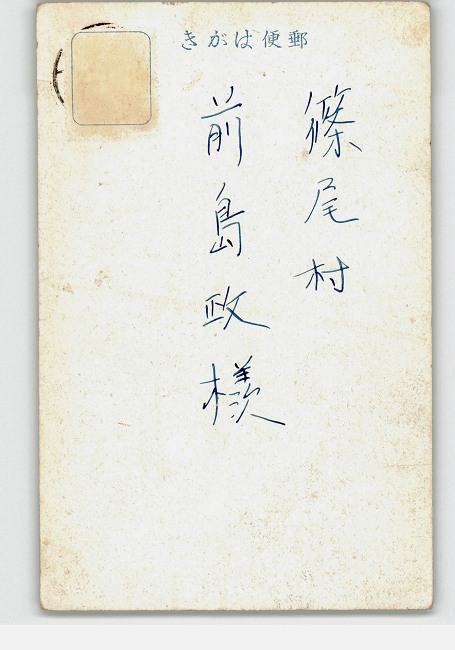 郵便はがき
篠尾村
前島政様